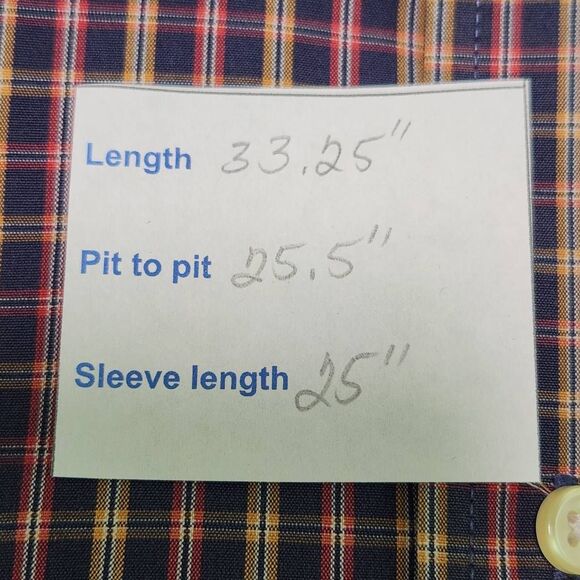 Length 33.25"
Pit to pit 25.5"
Sleeve length 25"